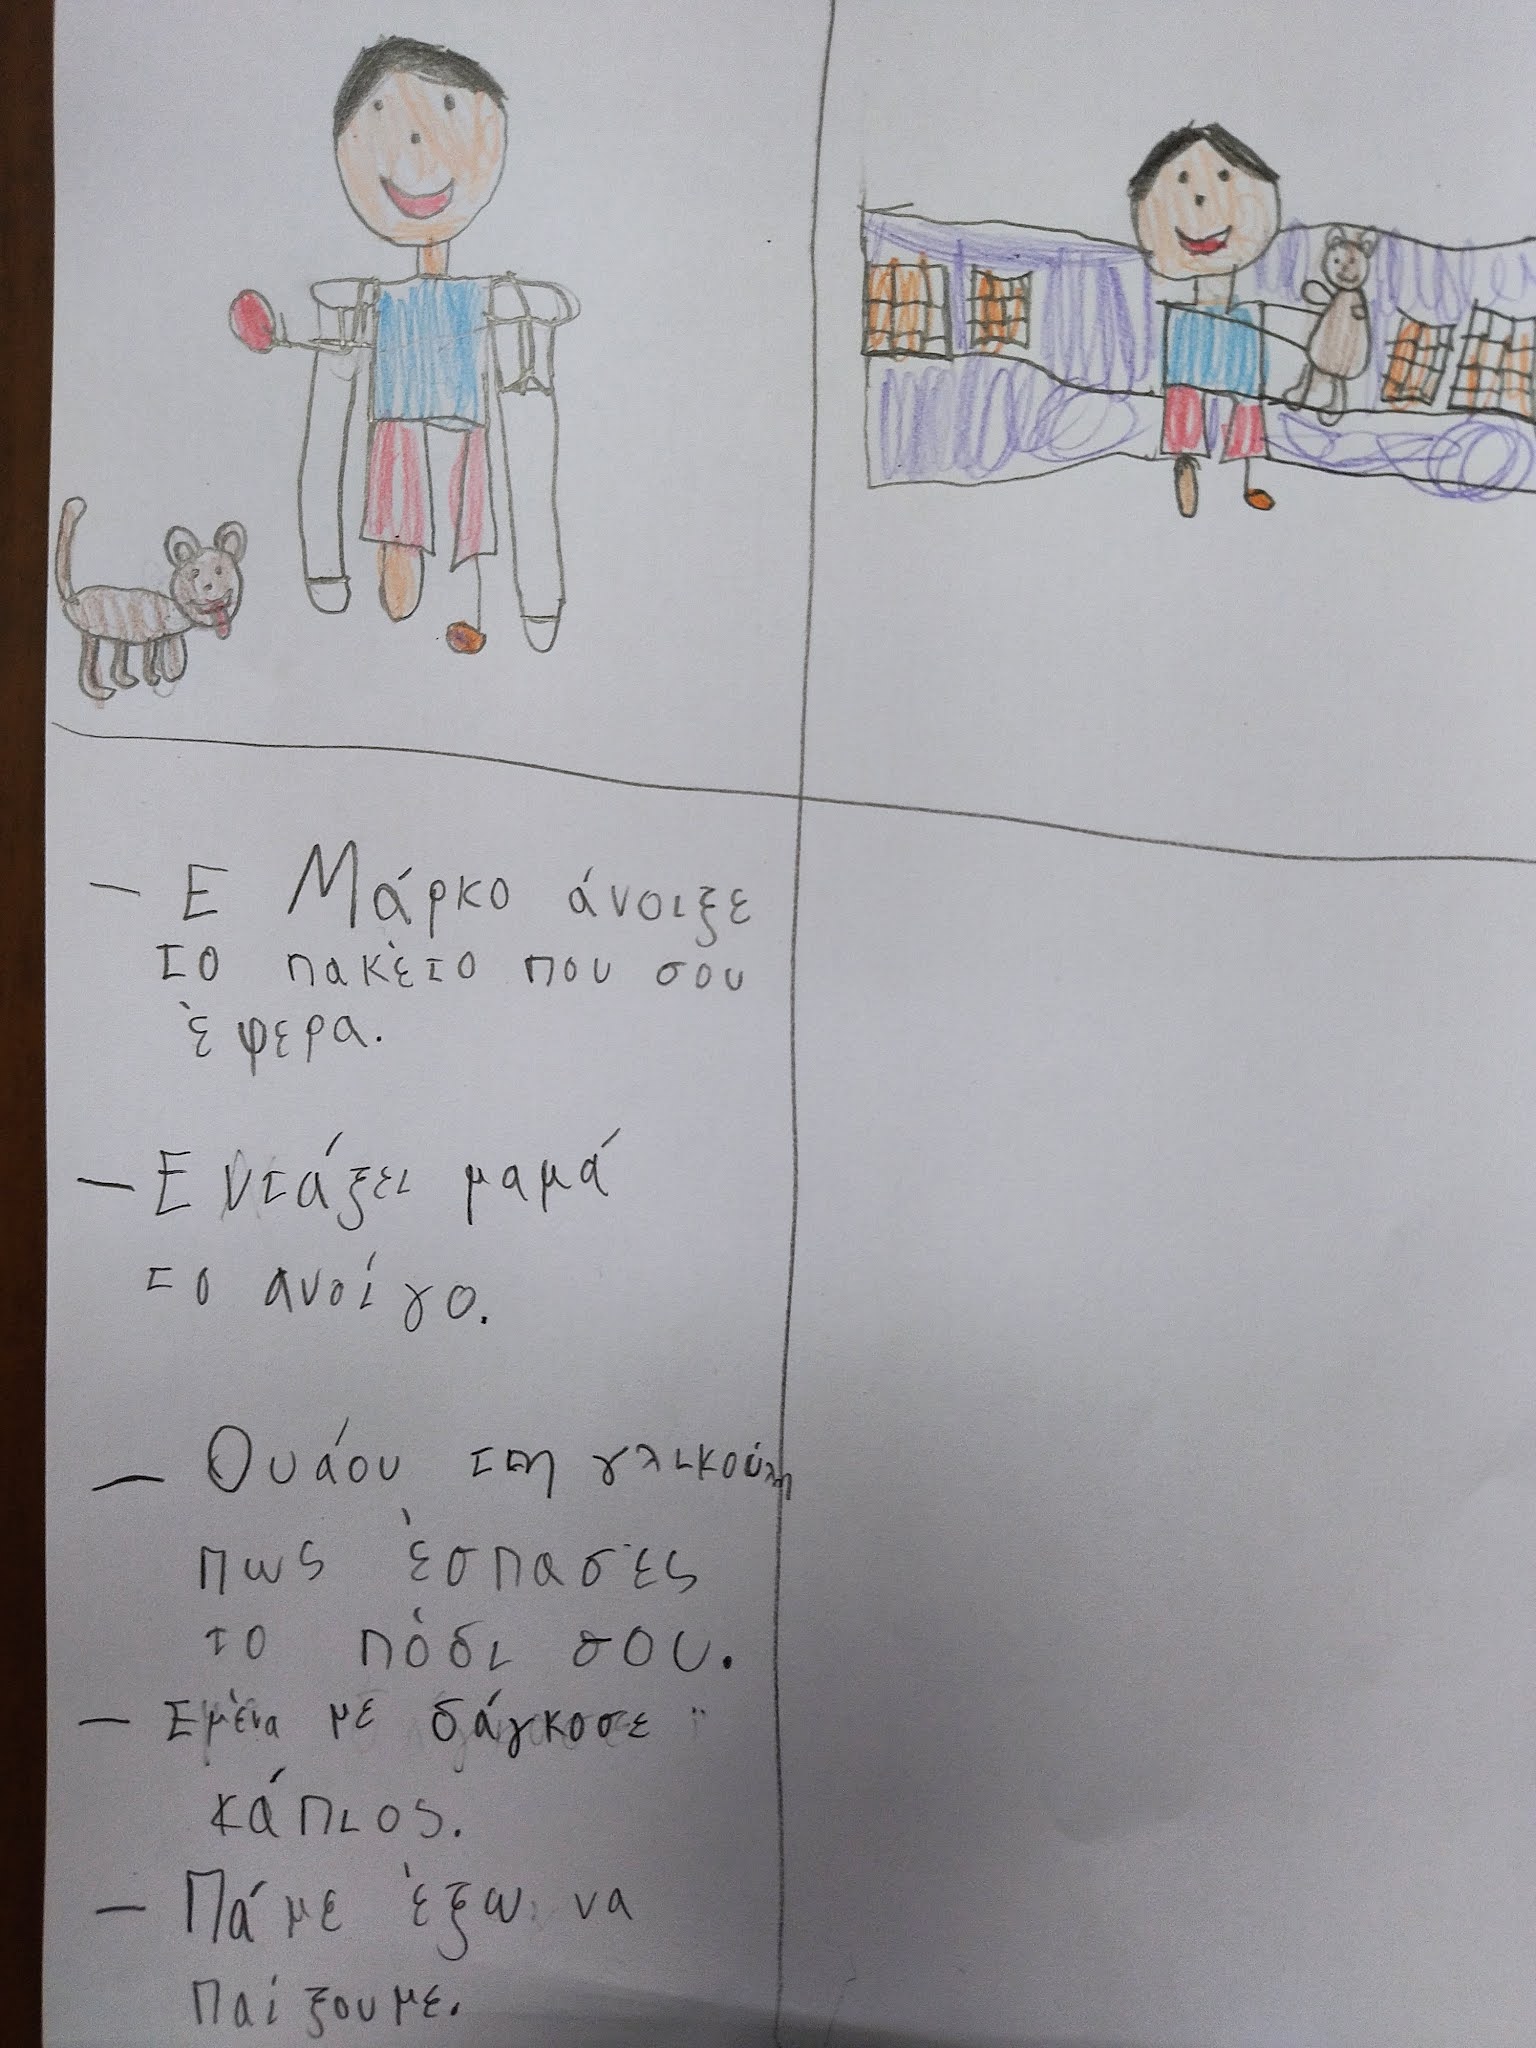 – Ε Μάρκο άνοιξε
το πακέτο που σου
έφερα.
– Εντάξει μαμά
το ανοίγο.
– Ουάου τι γλικούλη
πως έσπασες
το πόδι σου.
– Εμένα με δάγκοσε
κάπιος.
– Πάμε έξω να
παίξουμε.